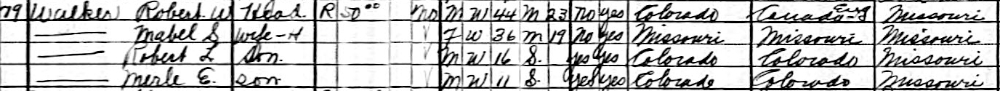 79 Walker Robert W Head R 50.00 No M W 44 M 23 No yes Colorado Canada-Eng Missouri
—— Mabel S Wife-H F W 36 M 19 No yes Missouri Missouri Missouri
—— Robert L Son M W 16 S yes yes Colorado Colorado Missouri
—— Merle E. Son M W 11 S yes yes Colorado Colorado Missouri